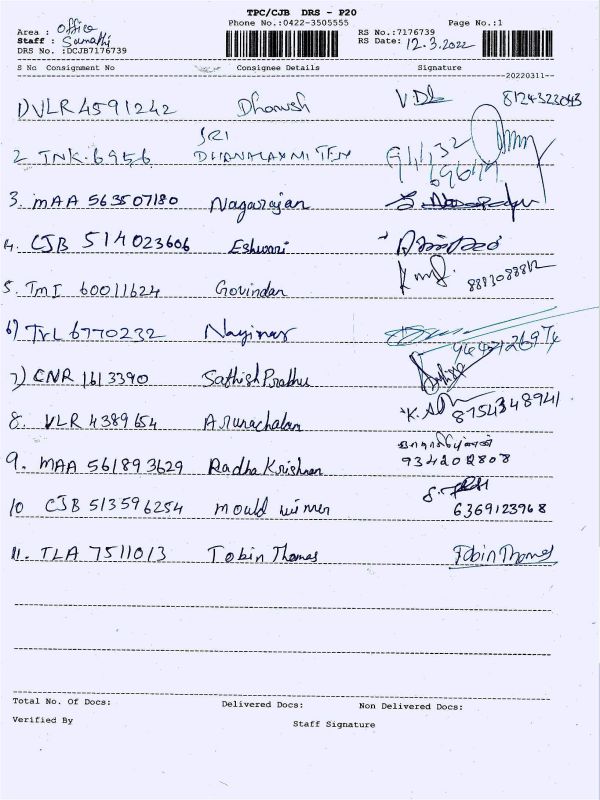 TPC/CJB DRS - P20
Phone No.:0422-3505555 Page No.:1
Area : Office
Staff : Sumathi
DRS No. :DCJB7176739
RS No.:7176739
RS Date: 12.3.2022
S No Consignment No Consignee Details Signature
--20220311--
1) VLR 4591242 Dhanush 8124323043
2 TNK. 6956 SRI DHANALAXMI TEX
3. MAA 563507180 Nagarajan
4. CJB 514023606 Eshwari
5. TMI 60011624 Govindan
6) TVL 6770232 Nayinar
7) CNR 1613390 Sathish Prabhu
8. VLR 4389654 Arunachalam 8754348941
9. MAA 561893629 Radha Krishnan 934202808
10 CJB 513596254 mould winner 6369123968
11. TLA 7511013 Tobin Thomas Tobin Thomas
Total No. Of Docs: Delivered Docs: Non Delivered Docs:
Verified By Staff Signature